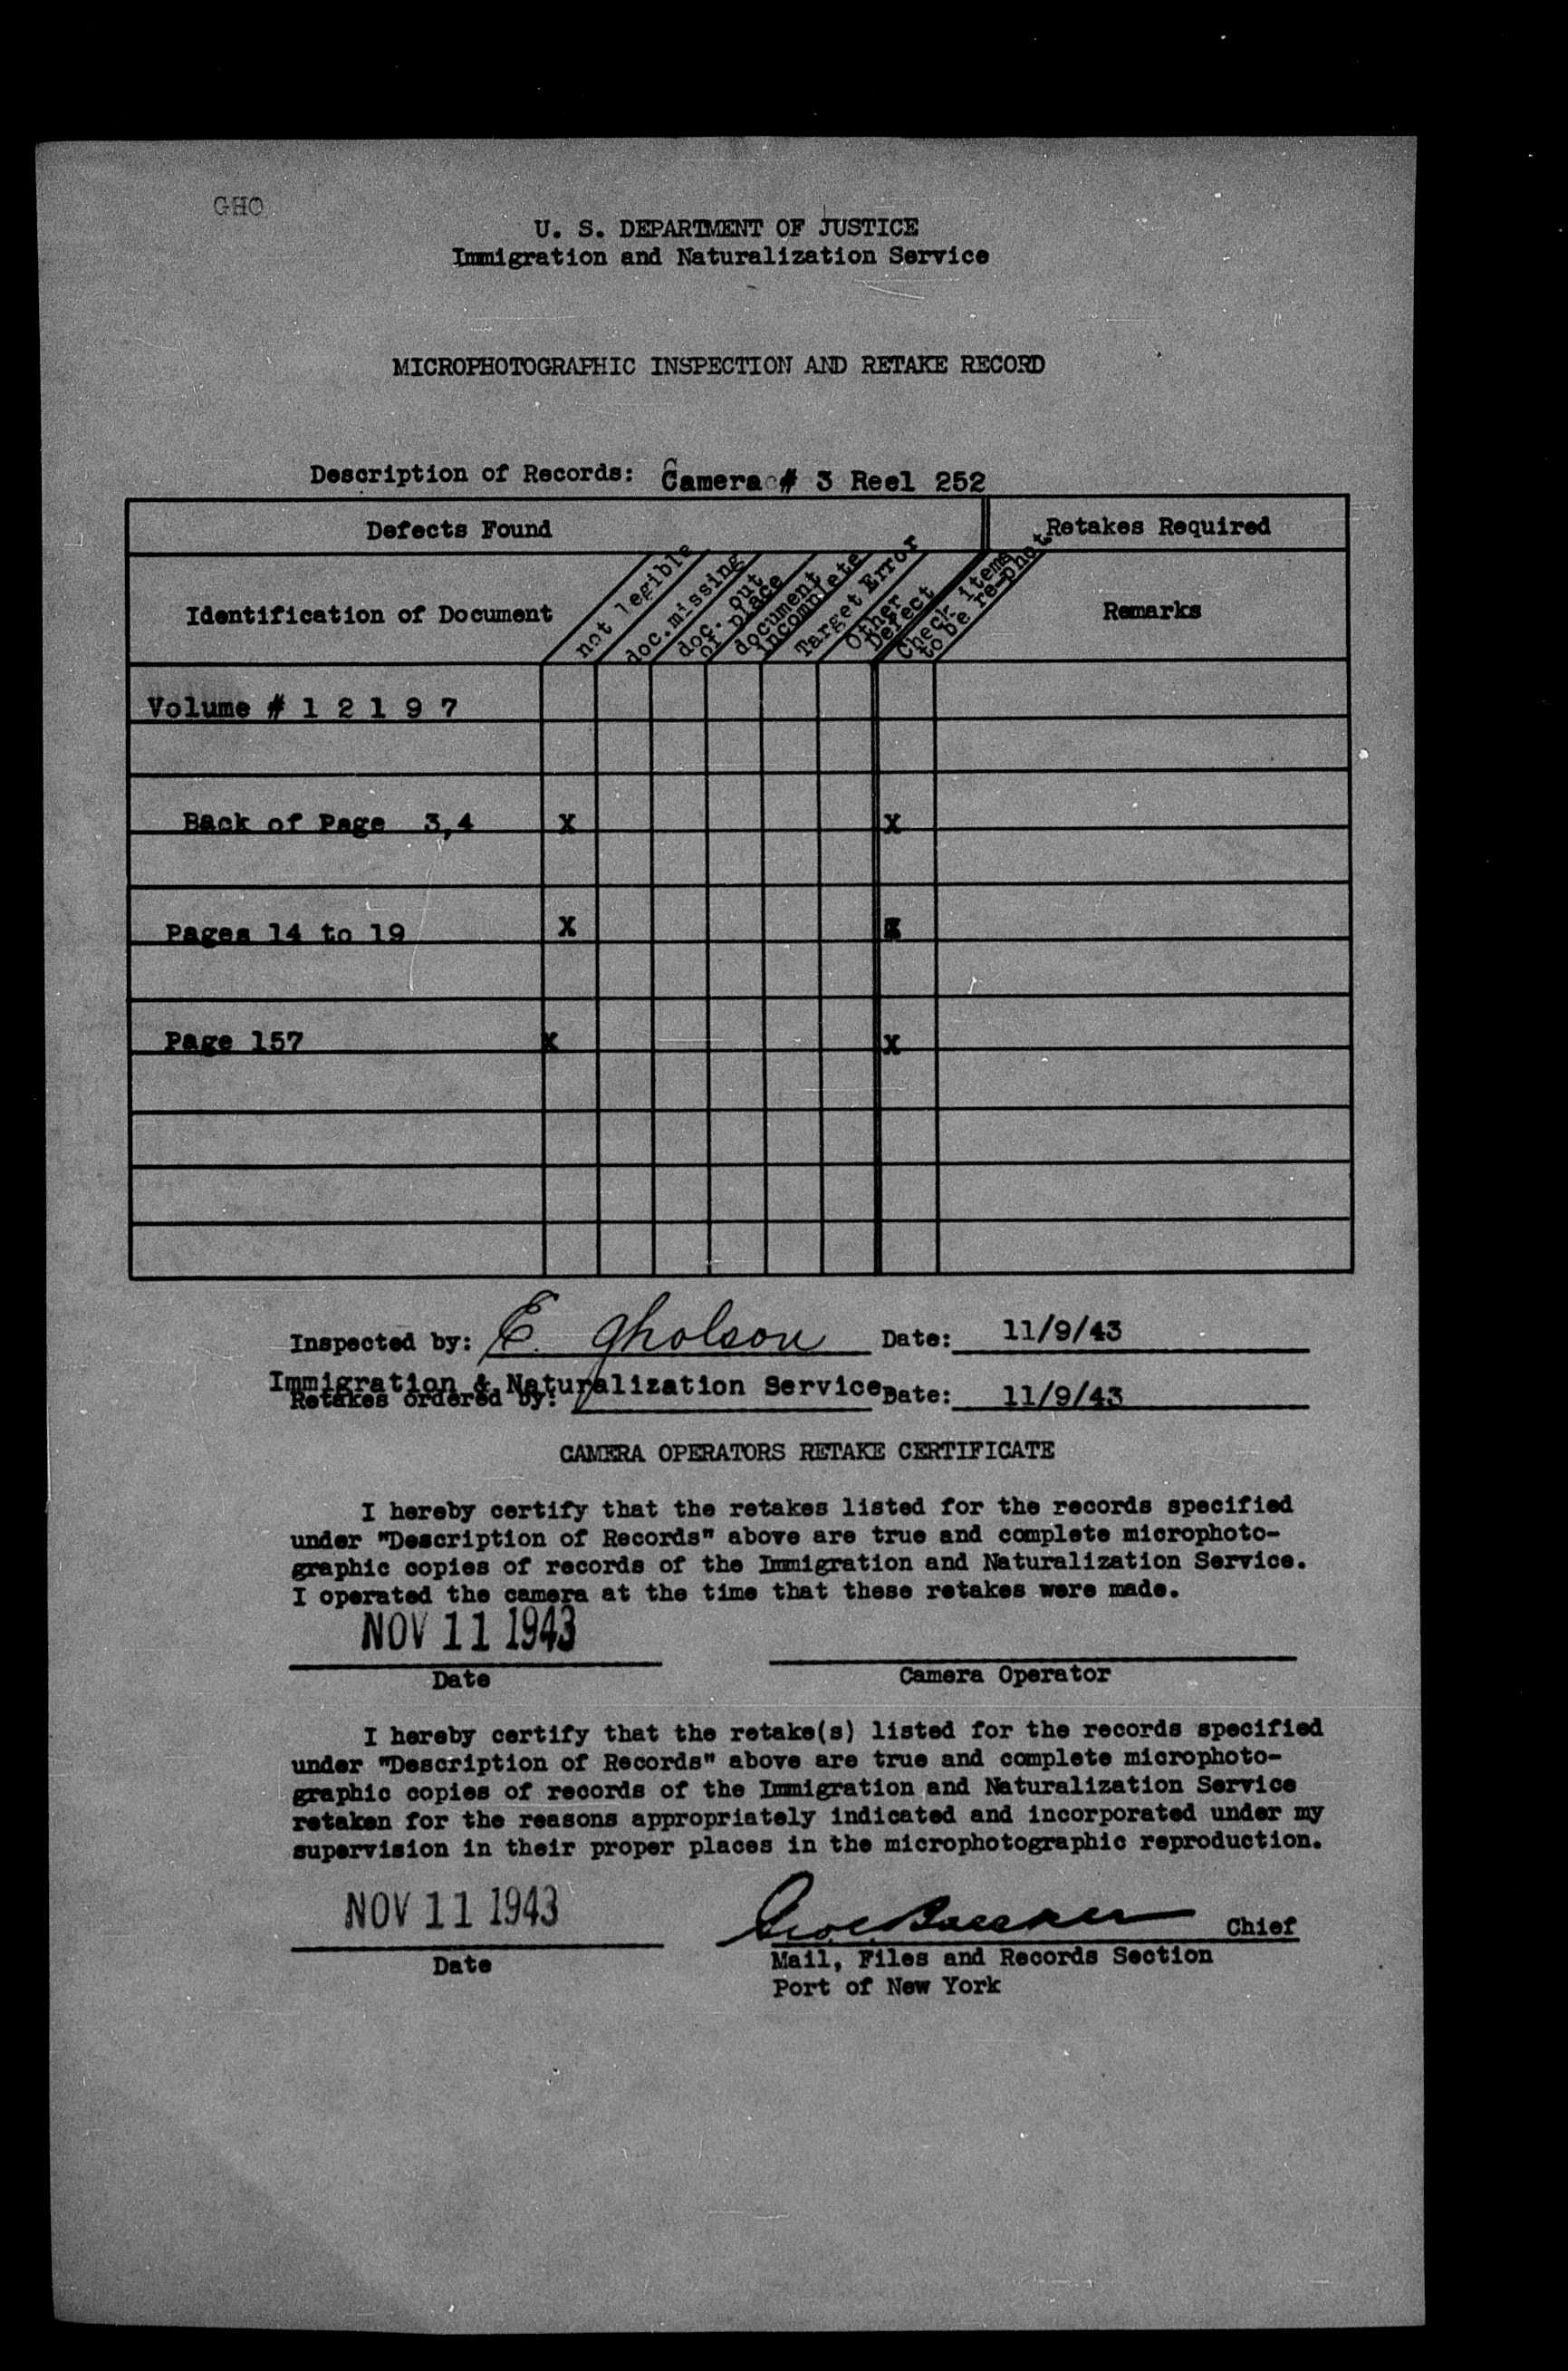 GHO
U. S. DEPARTMENT OF JUSTICE
Immigration and Naturalization Service
MICROPHOTOGRAPHIC INSPECTION AND RETAKE RECORD
Description of Records: Camera # 3 Reel 252
Defects Found
Retakes Required
Identification of Document
not legible
doc.missing
doc. out
of place
document
incomplete
Target Error
Other
Defect
Check items
to be re-phot.
Remarks
Volume # 1 2 1 9 7
Back of Page 3,4 X X
Pages 14 to 19 X X
Page 157 X X
Inspected by: E. Gholson Date: 11/9/43
Immigration & Naturalization Service
Retakes ordered by: Date: 11/9/43
CAMERA OPERATORS RETAKE CERTIFICATE
I hereby certify that the retakes listed for the records specified
under "Description of Records" above are true and complete microphoto-
graphic copies of records of the Immigration and Naturalization Service.
I operated the camera at the time that these retakes were made.
NOV 11 1943
Date
Camera Operator
I hereby certify that the retake(s) listed for the records specified
under "Description of Records" above are true and complete microphoto-
graphic copies of records of the Immigration and Naturalization Service
retaken for the reasons appropriately indicated and incorporated under my
supervision in their proper places in the microphotographic reproduction.
NOV 11 1943
Date
Chief
Mail, Files and Records Section
Port of New York